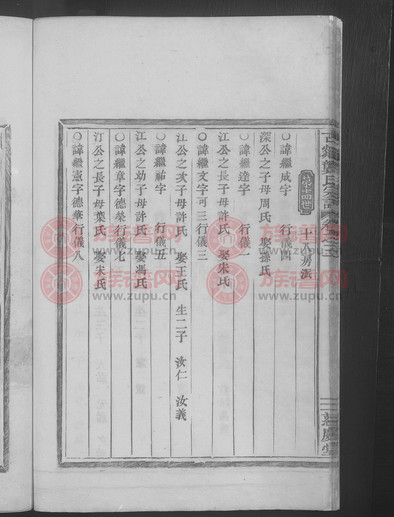 十六房派
○諱繼成字　行儀四
深公之子母周氏　娶孫氏
○諱繼達字　行儀一
江公之長子母許氏　娶宋氏
○諱繼文字可三行儀三
江公之次子母許氏　娶王氏　生二子　汝仁　汝義
○諱繼祐字　行儀五
江公之幼子母許氏　娶馮氏
○諱繼章字德榮行儀七
汀公之長子母葉氏　娶宋氏
○諱繼憲字德華行儀八
族譜网
www.zupu.cn